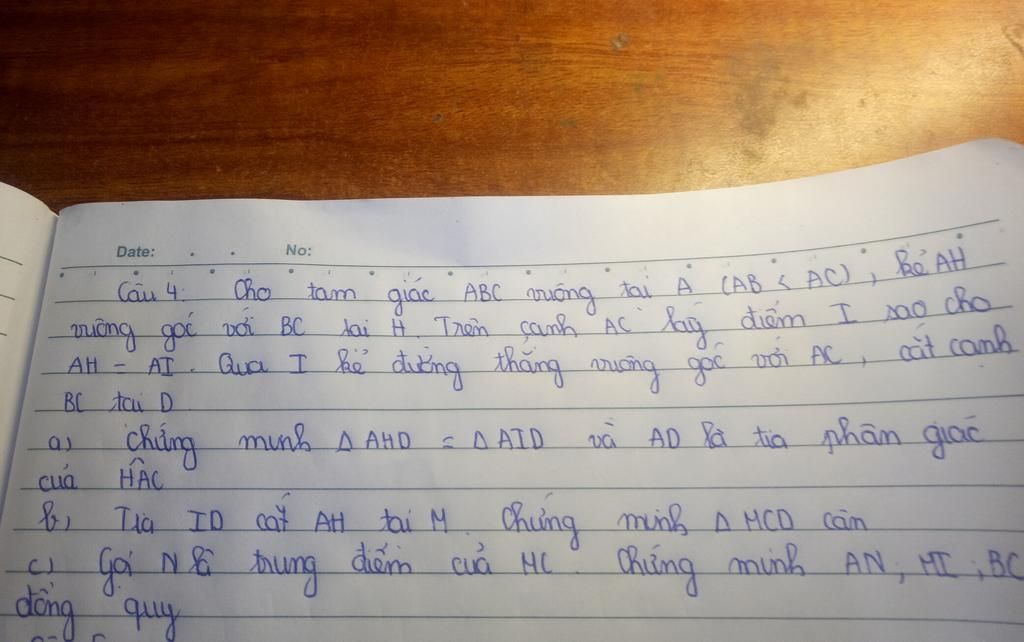 Date: . . No:
Câu 4: Cho tam giác ABC vuông tại A (AB < AC), kẻ AH
vuông góc với BC tại H. Trên cạnh AC lấy điểm I sao cho
AH = AI. Qua I kẻ đường thẳng vuông góc với AC, cắt cạnh
BC tại D
a, chứng minh Δ AHD = Δ AID và AD là tia phân giác
của HÂC
b, Tia ID cắt AH tại M. Chứng minh Δ MCD cân
c) Gọi N là trung điểm của MC. Chứng minh AN, MI, BC
đồng quy